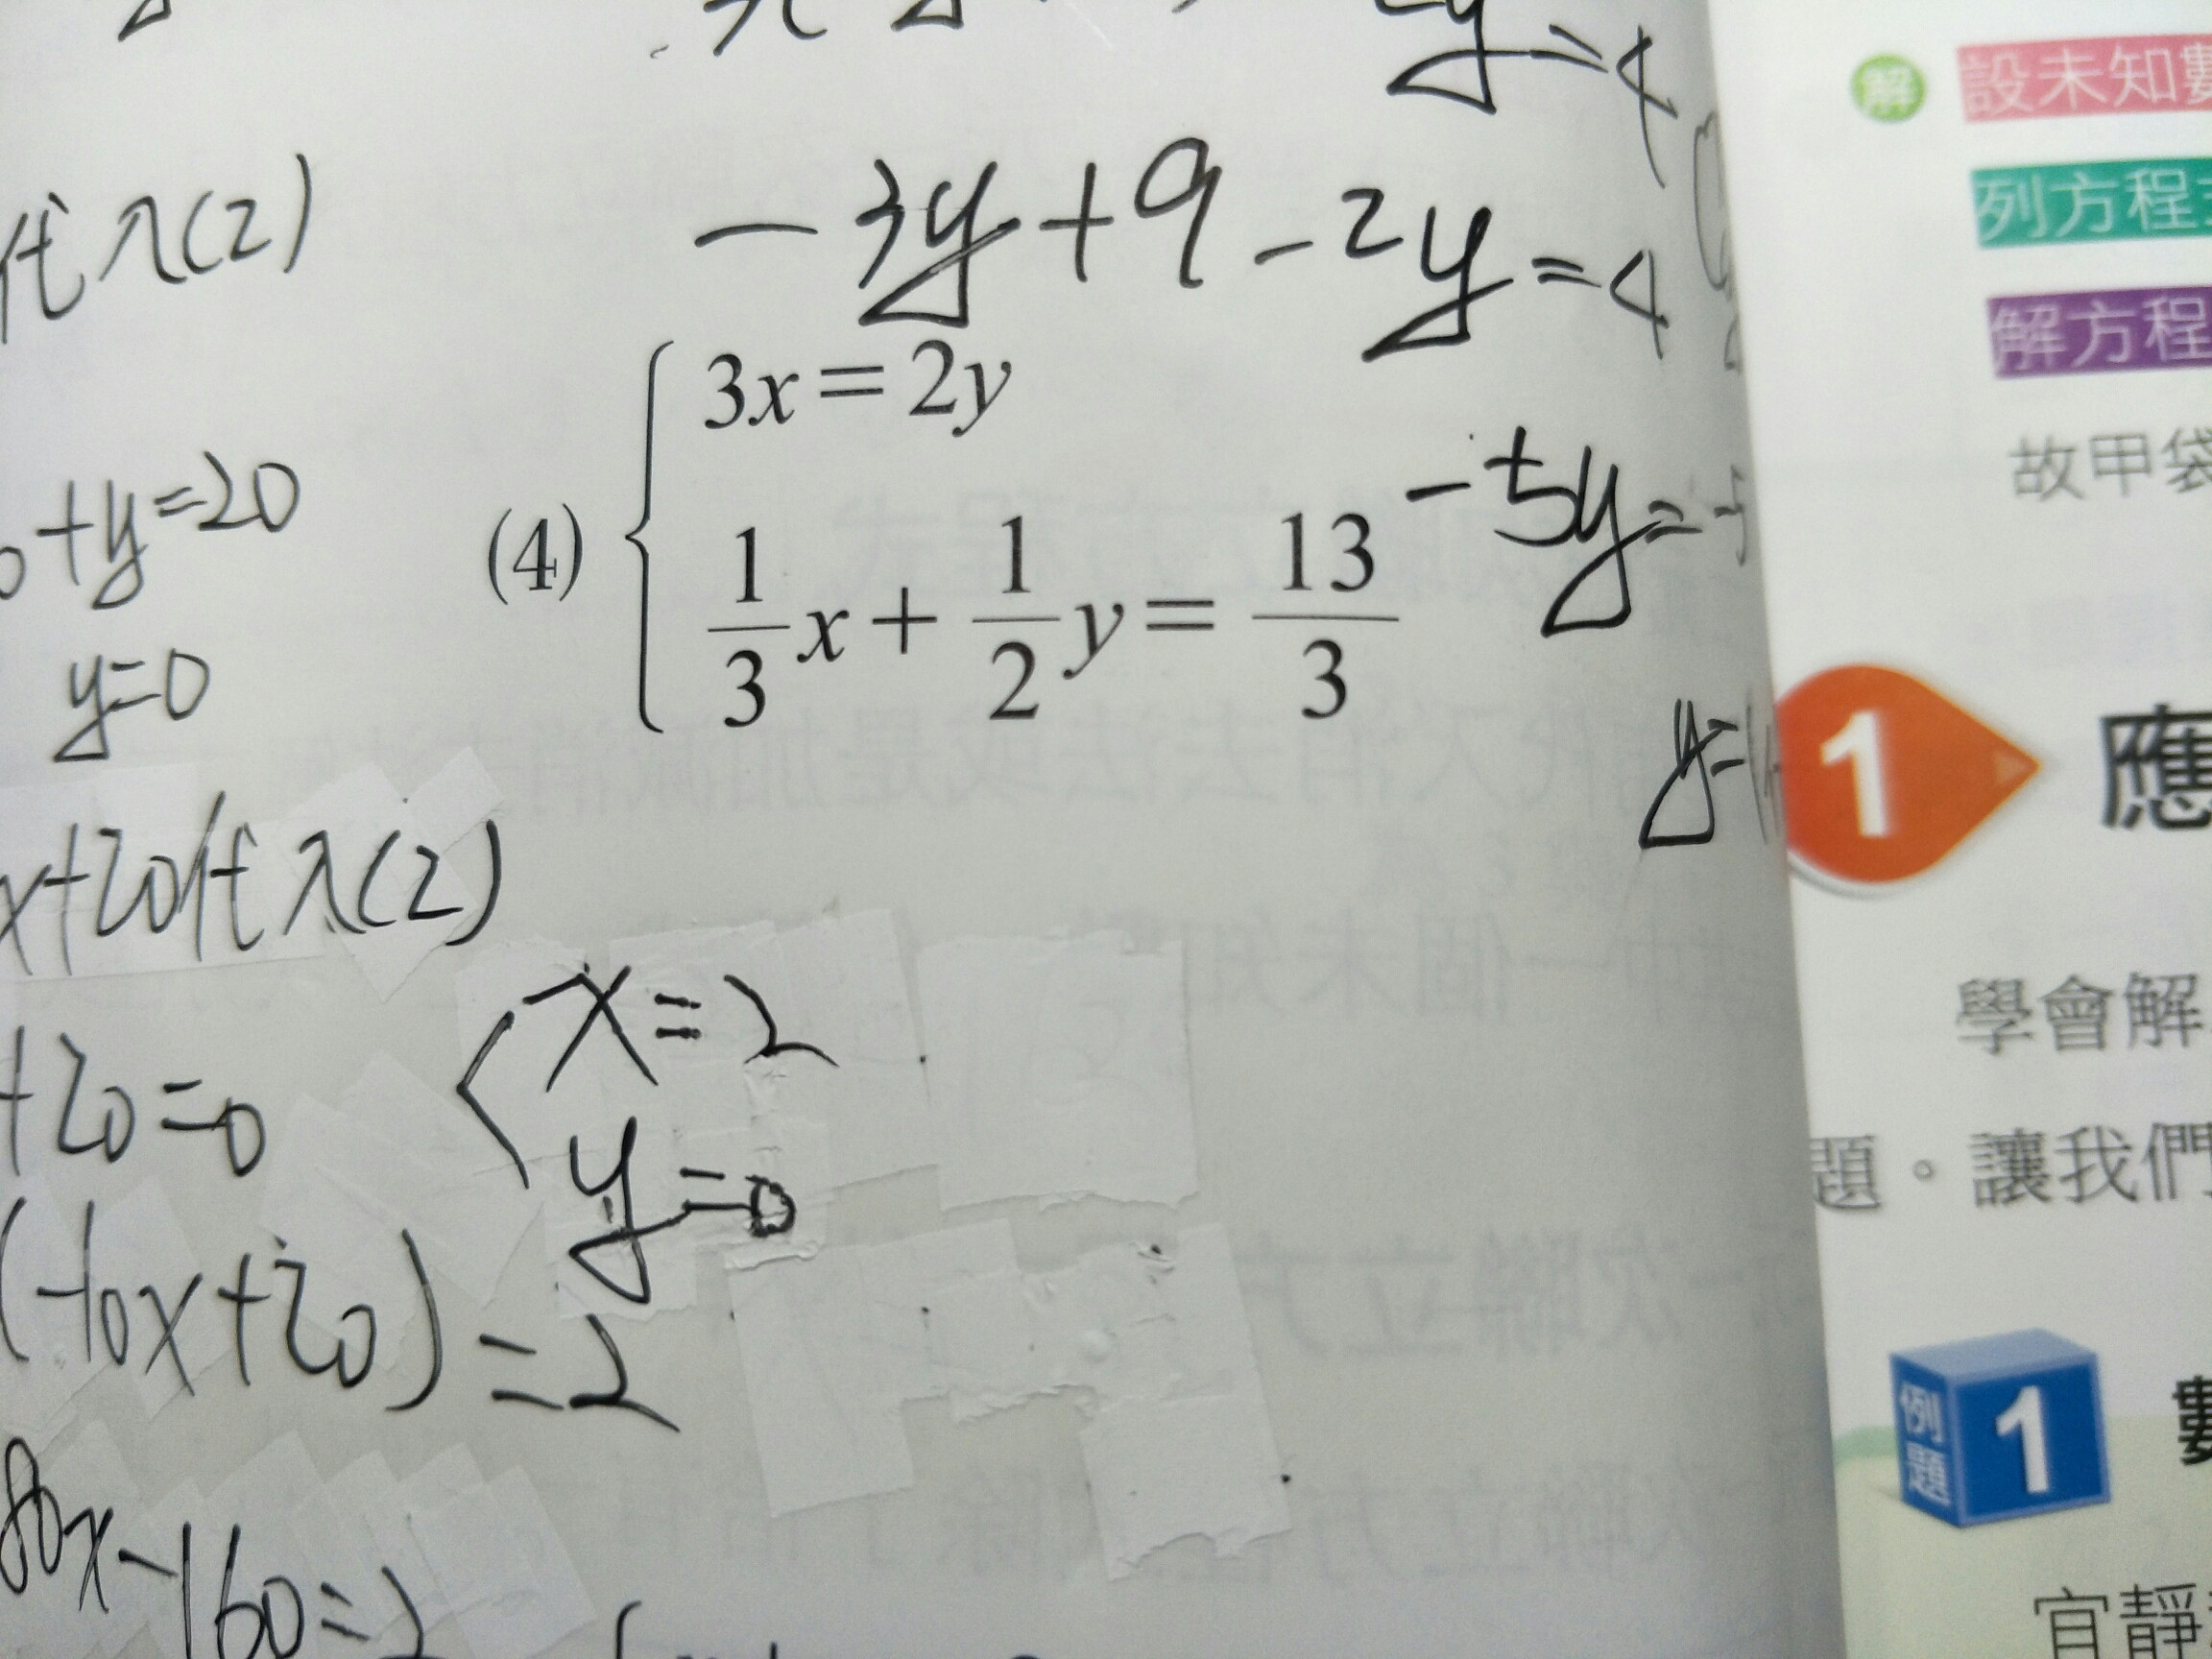 代入(2)
-3y+9-2y=4
+y=20
y=0
(4) { 3x=2y
1/3 x + 1/2 y = 13/3
-5y=-5
y=1
x+20代入(2)
{ x=2
y=0
+20=0
(-10x+20)=2
80x-160=2
解 設未知數
列方程
解方程
故甲袋
1 應
學會解
題。讓我們
例題 1 數
宜靜